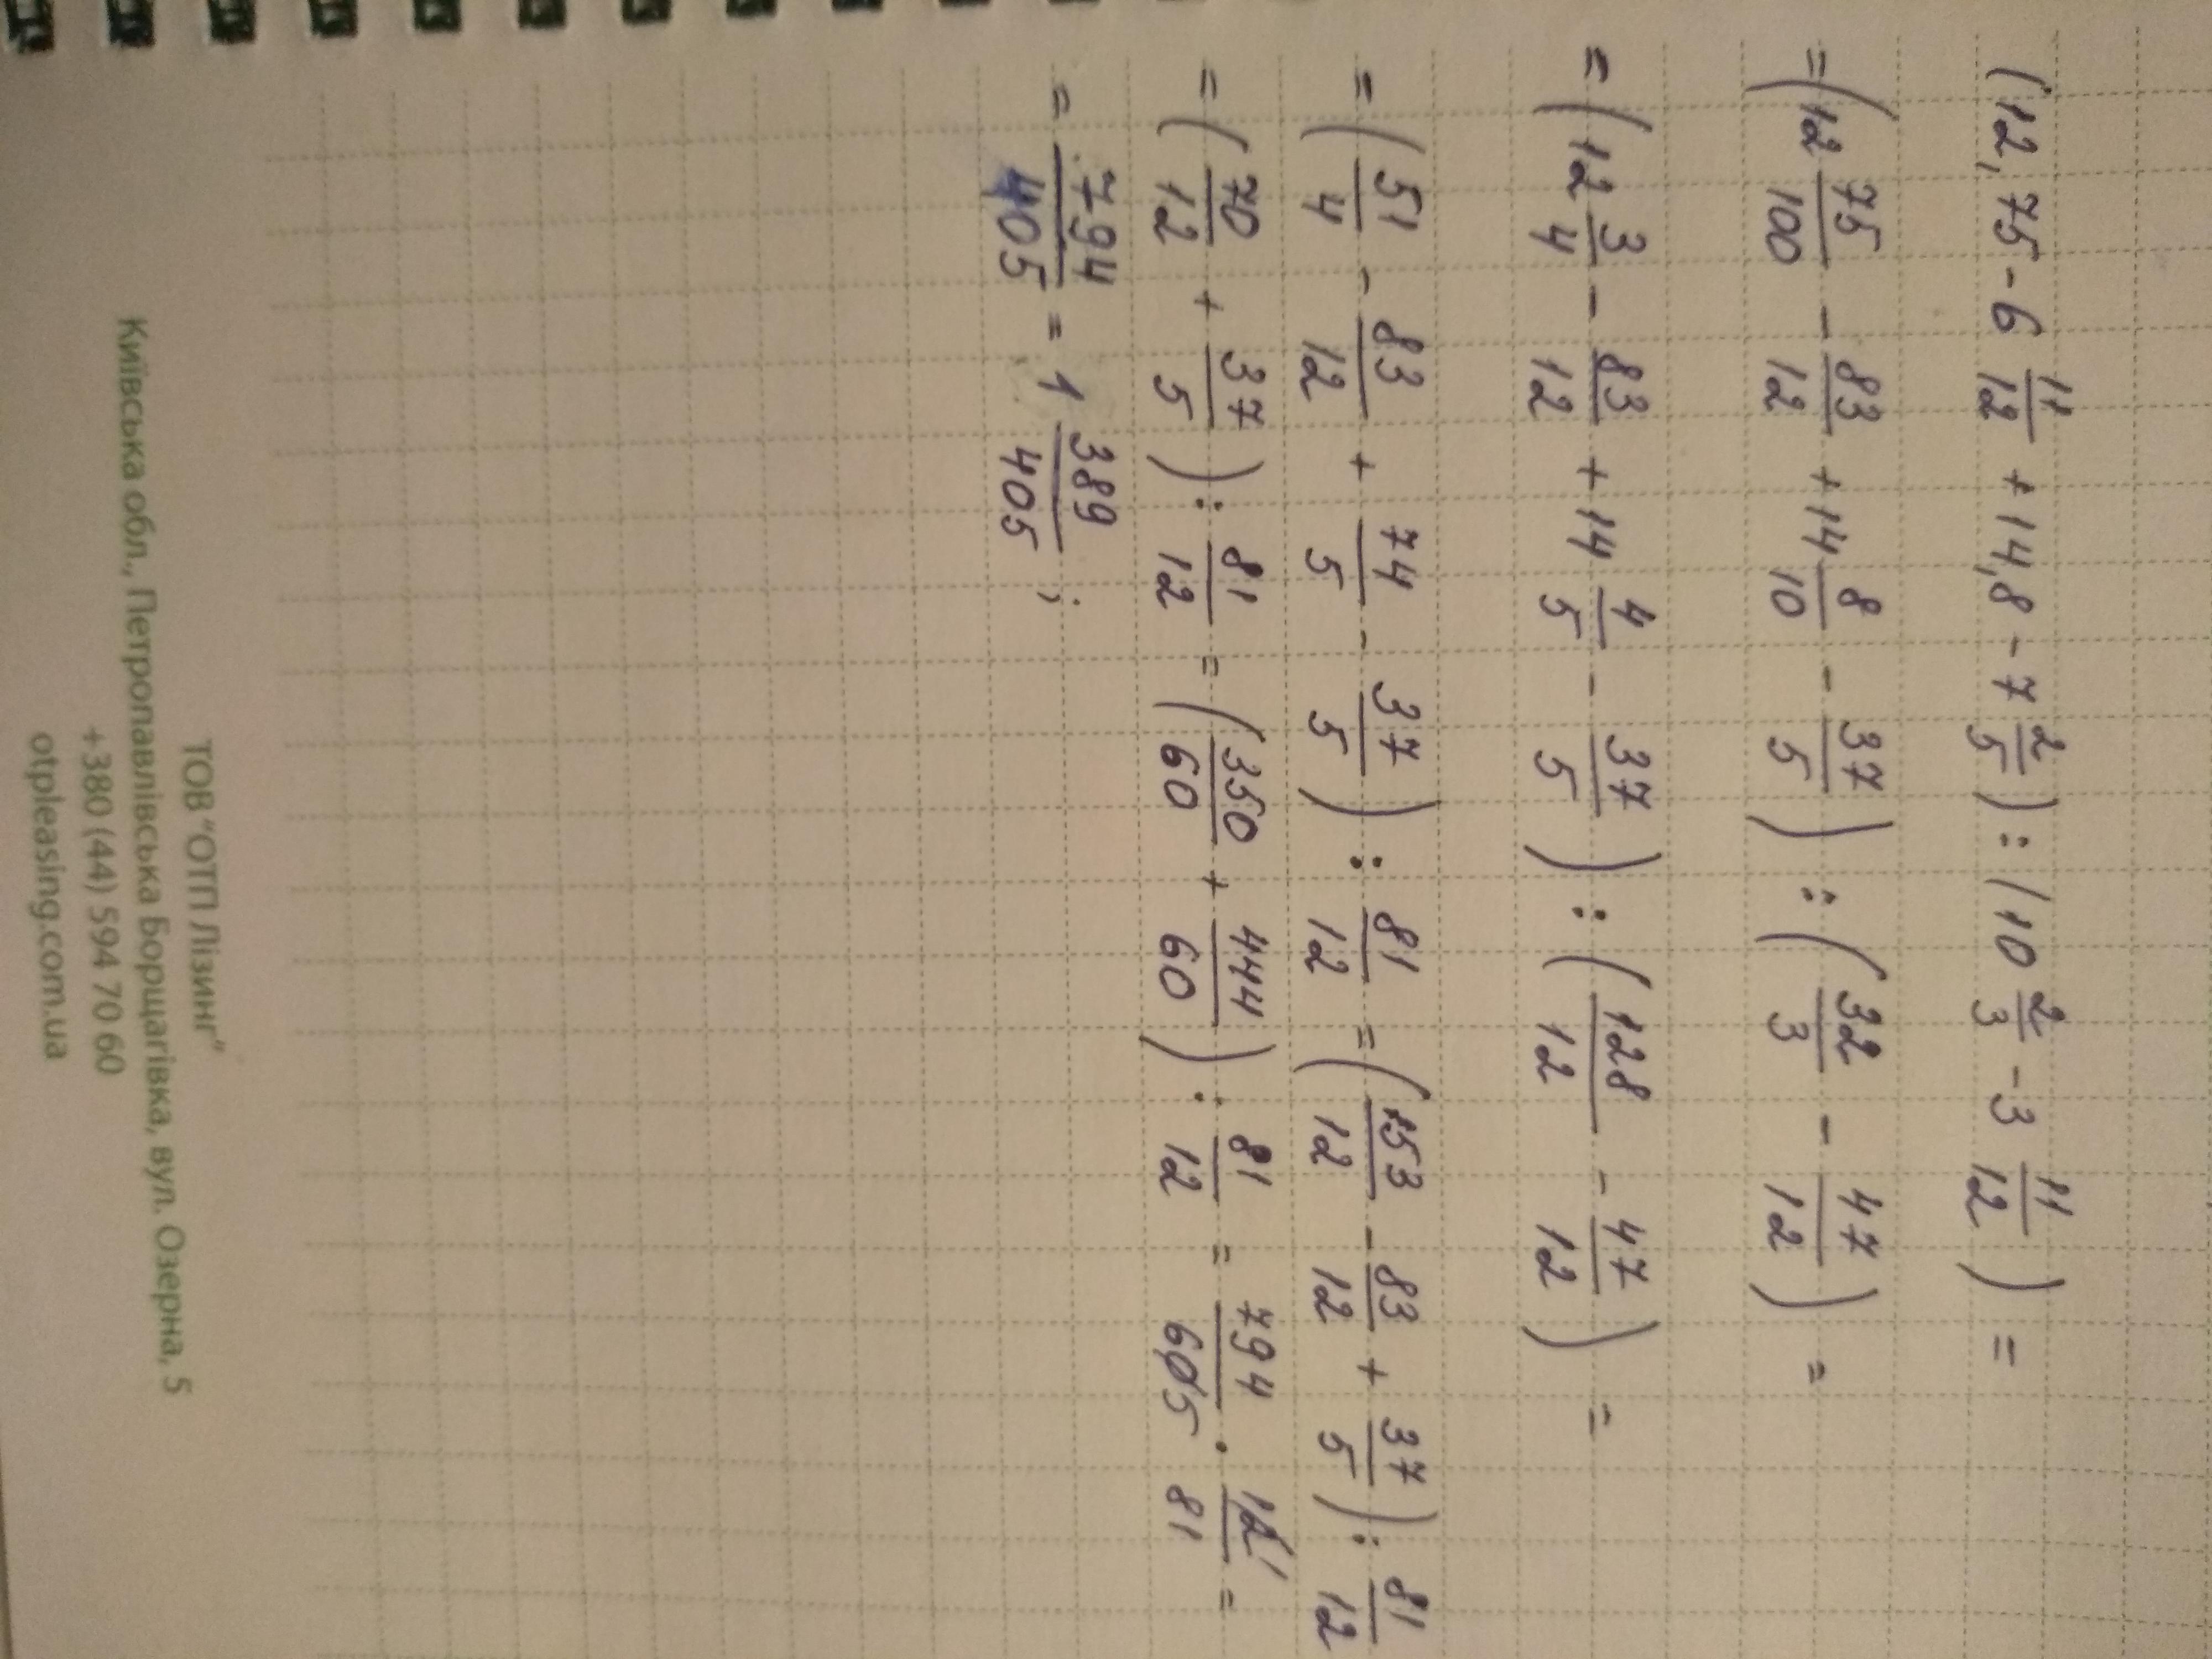 (12,75 - 6 11/12 + 14,8 - 7 2/5) : (10 2/3 - 3 11/12) =
= (12 75/100 - 83/12 + 14 8/10 - 37/5) : (32/3 - 47/12) =
= (12 3/4 - 83/12 + 14 4/5 - 37/5) : (128/12 - 47/12) =
= (51/4 - 83/12 + 74/5 - 37/5) : 81/12 = (153/12 - 83/12 + 37/5) : 81/12
= (70/12 + 37/5) : 81/12 = (350/60 + 444/60) : 81/12 = 794/60 5 · 12 1/81 =
= 794/405 = 1 389/405 ;
ТОВ "ОТП Лізинг"
Київська обл., Петропавлівська Борщагівка, вул. Озерна, 5
+380 (44) 594 70 60
otpleasing.com.ua